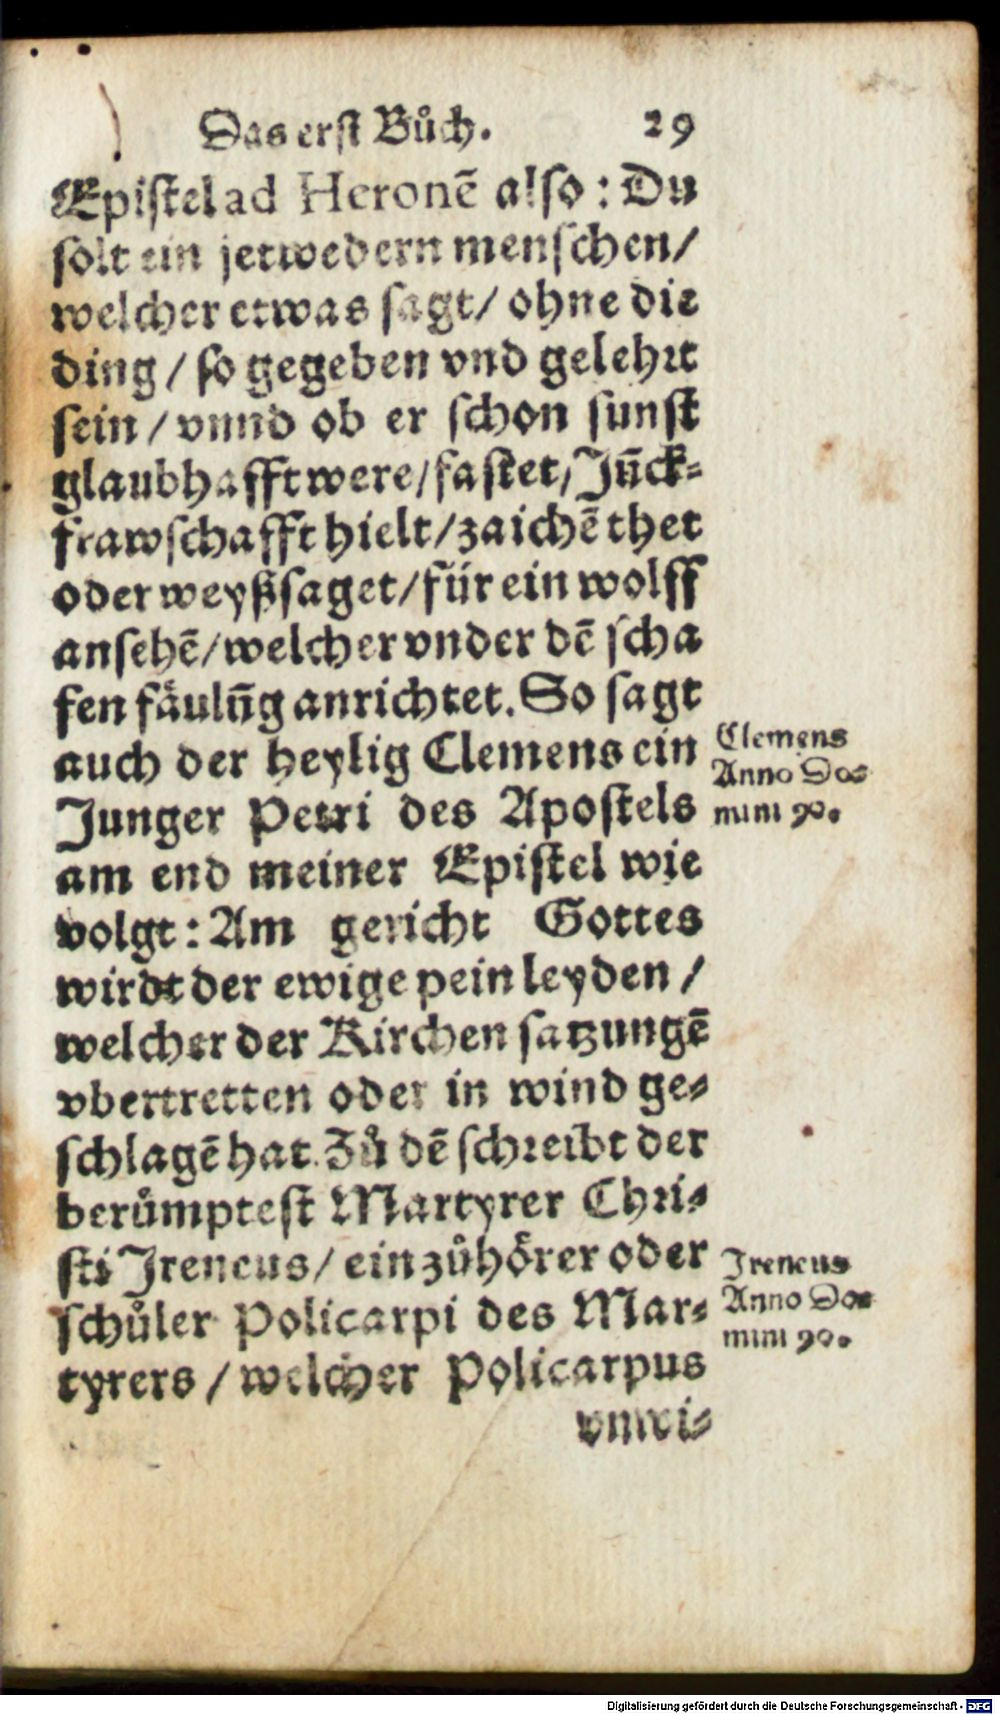 Das erst Bůch. 29
Epistel ad Heronē also: Du
solt ein jetwedern menschen/
welcher etwas sagt/ ohne die
ding / so gegeben vnd gelehrt
sein / vnnd ob er schon sunst
glaubhafft were/ fastet/ Jūck=
frawschafft hielt/ zaichē thet
oder weyßsaget/ für ein wolff
ansehē/ welcher vnder dē scha
fen fäulūg anrichtet. So sagt
auch der heylig Clemens ein
Junger Petri des Apostels
am end meiner Epistel wie
volgt: Am gericht Gottes
wirdt der ewige pein leyden /
welcher der Kirchen satzungē
vbertretten oder in wind ge=
schlagē hat. Zů dē schreibt der
berůmptest Martyrer Chri=
sti Jreneus/ ein zůhörer oder
schůler Policarpi des Mar=
tyrers / welcher Policarpus
vnwi=
Clemens
Anno Do=
mini 90.
Jreneus
Anno Do=
mini 90.
Digitalisierung gefördert durch die Deutsche Forschungsgemeinschaft - DFG